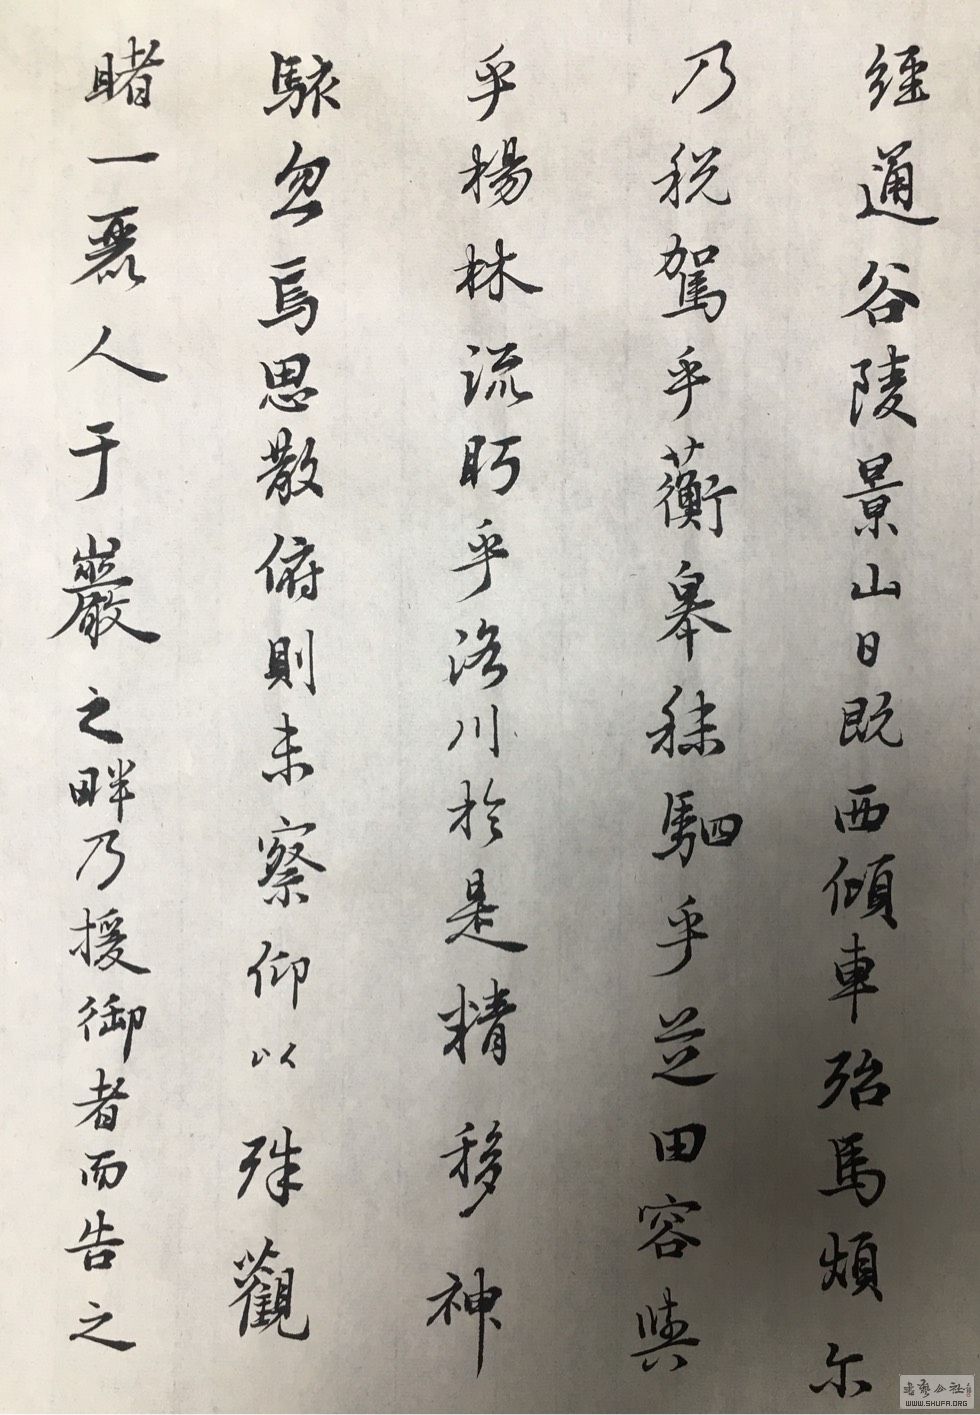 經通谷陵景山日既西傾車殆馬煩尔
乃税駕乎蘅皋秣駟乎芝田容與
乎楊林流眄乎洛川於是精移神
駭忽焉思散俯則未察仰以殊觀
睹一麗人于巖之畔乃援御者而告之
書藝公社
WWW.SHUFA.ORG